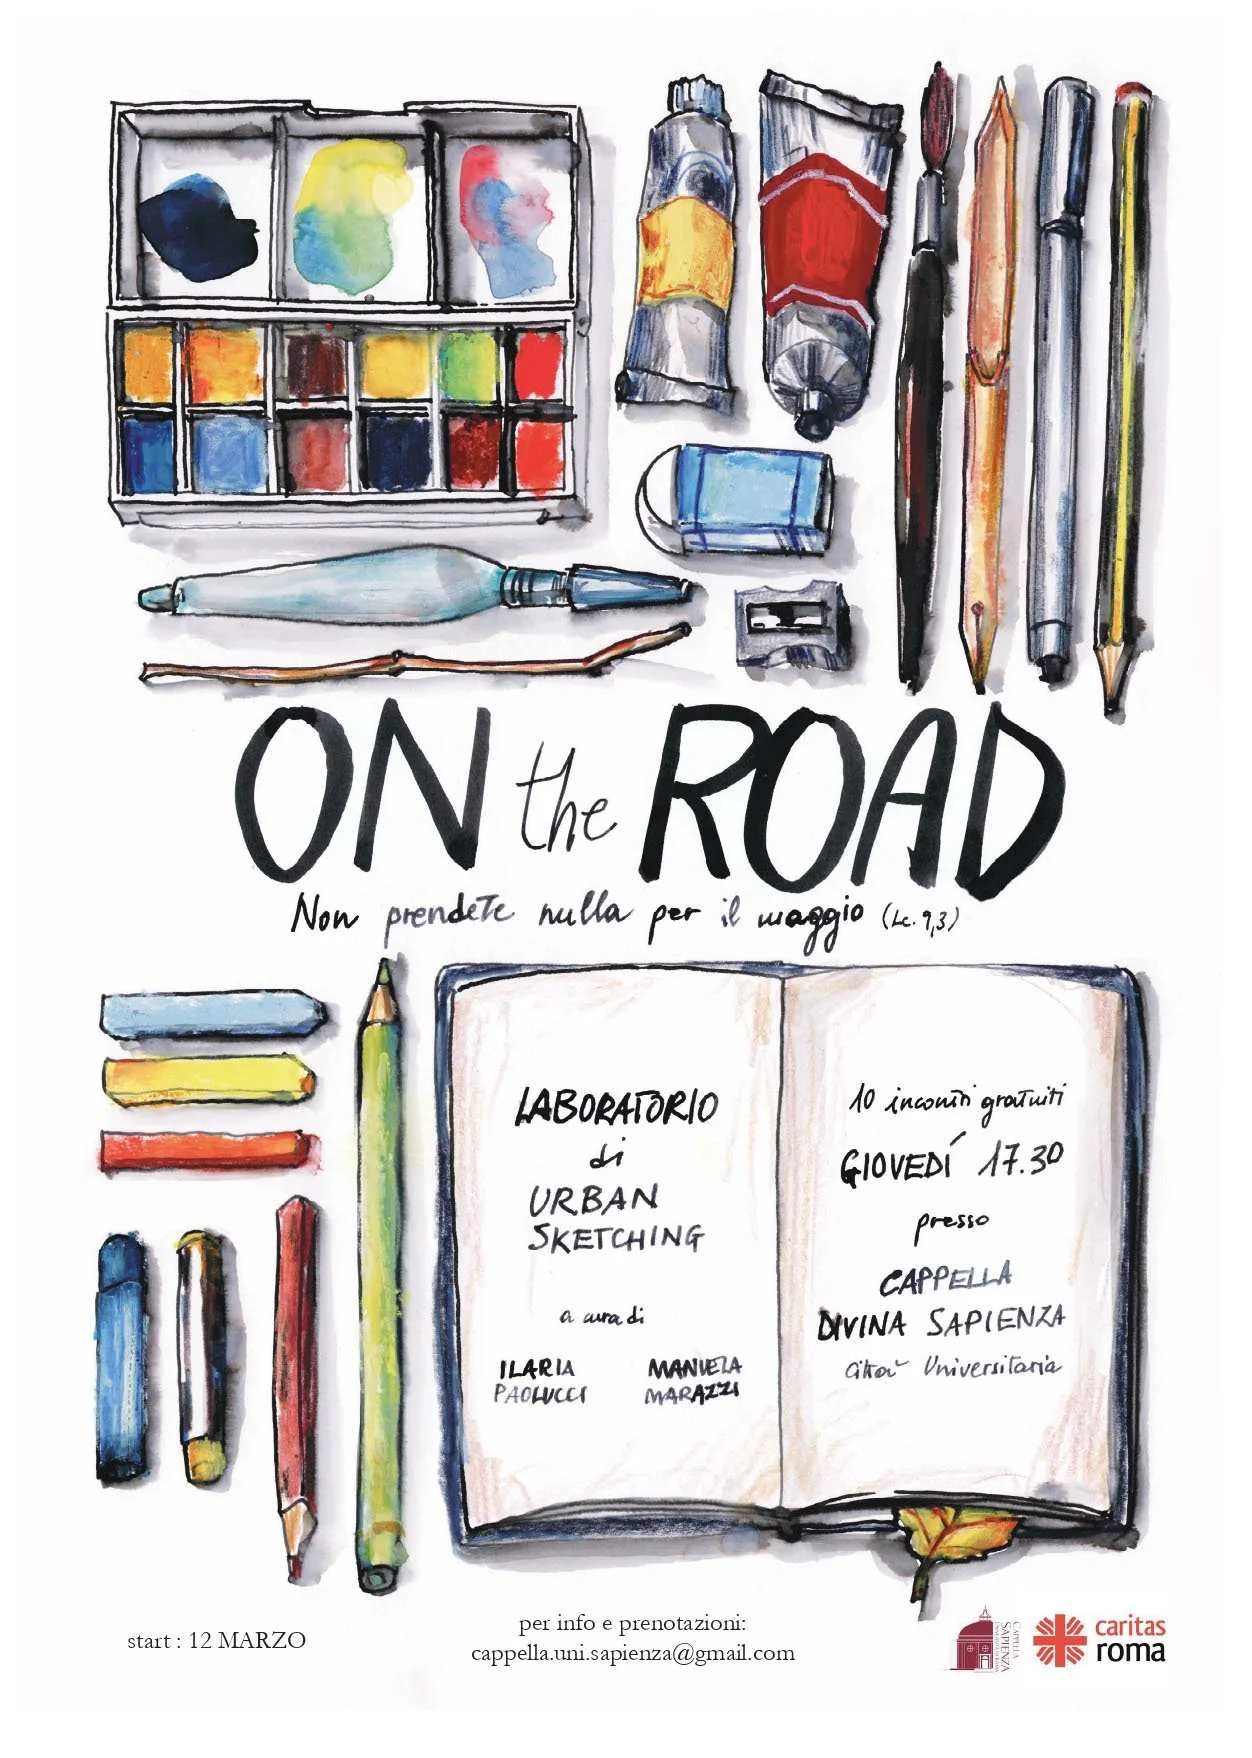 ON the ROAD
Non prendete nulla per il viaggio (Lc. 9,3)
LABORATORIO
di
URBAN
SKETCHING
a cura di
ILARIA
PAOLUCCI
MANUELA
MARAZZI
10 incontri gratuiti
GIOVEDÍ 17.30
presso
CAPPELLA
DIVINA SAPIENZA
Città Universitaria
start : 12 MARZO
per info e prenotazioni:
cappella.uni.sapienza@gmail.com
CAPPELLA
SAPIENZA
caritas
roma